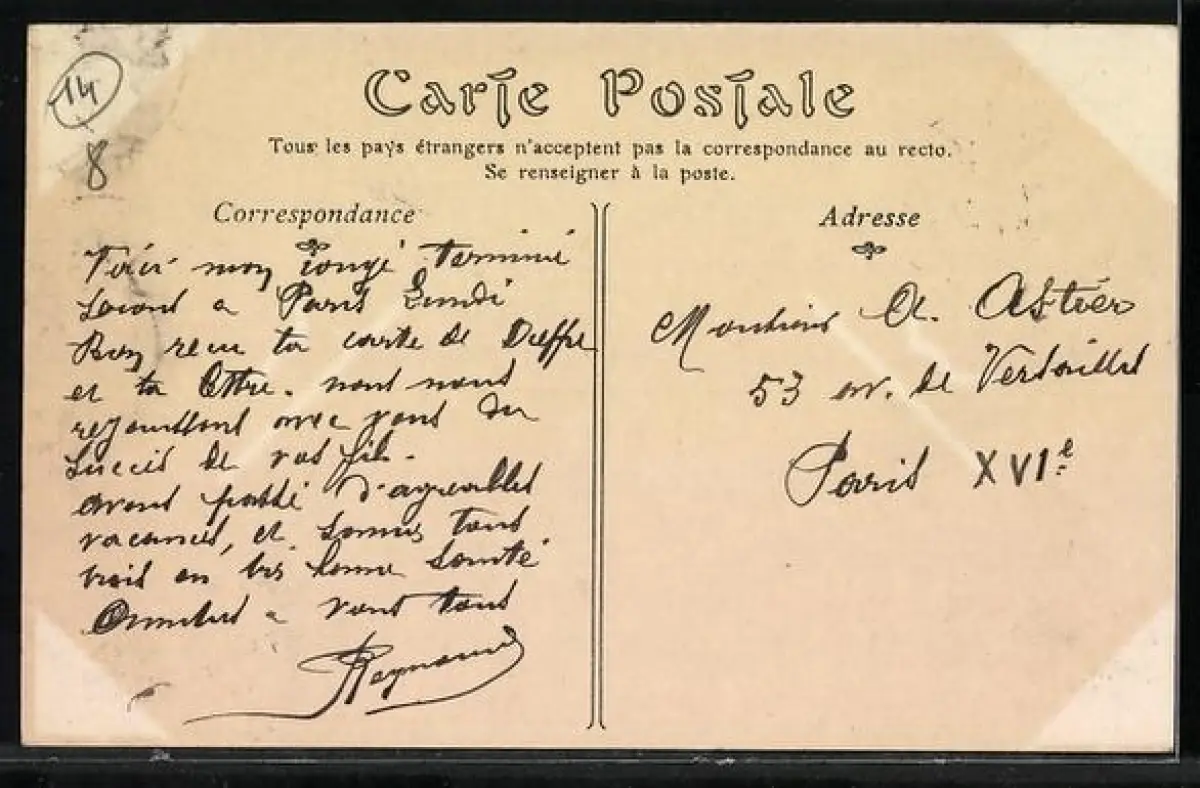 14
8
Carte Postale
Tous les pays étrangers n'acceptent pas la correspondance au recto.
Se renseigner à la poste.
Correspondance
mon congé terminé
Serons a Paris Lundi
Bien recu ta carte de Dieppe
et ta lettre. nous nous
rejouissons avec vous du
succès de vos fils.
avons passé d'agreables
vacances, et sommes tous
trois en très bonne santé
a vous tous
Raymond
Adresse
Monsieur A. Astier
53 av. de Versailles
Paris XVIe